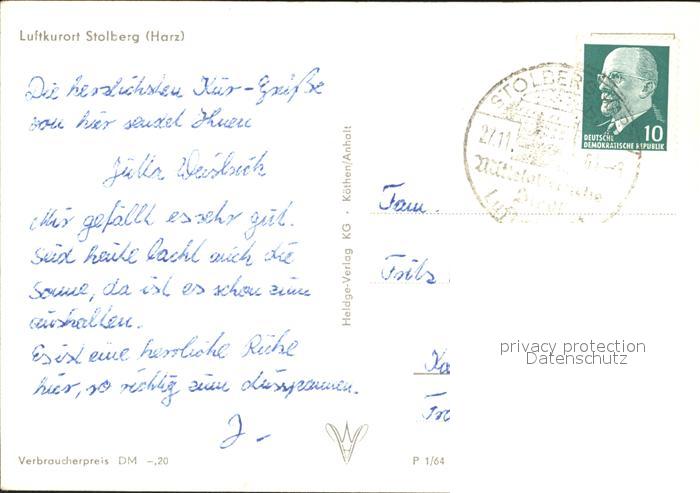 Luftkurort Stolberg (Harz)
Die herzlichsten Kur-Grüße
von hier sendet Ihnen
Jutta
Mir gefällt es sehr gut.
Und heute lacht auch die
Sonne, da ist es schon zum
aushalten.
Es ist eine herrliche Ruhe
hier, so richtig zum Ausspannen.
J.-
Verbraucherpreis DM -,20
Heldge-Verlag KG · Köthen/Anhalt
P 1/64
STOLBERG
27.11.
Mittelalterliche
DEUTSCHE
DEMOKRATISCHE REPUBLIK
10
Fam.
Fritz
privacy protection
Datenschutz